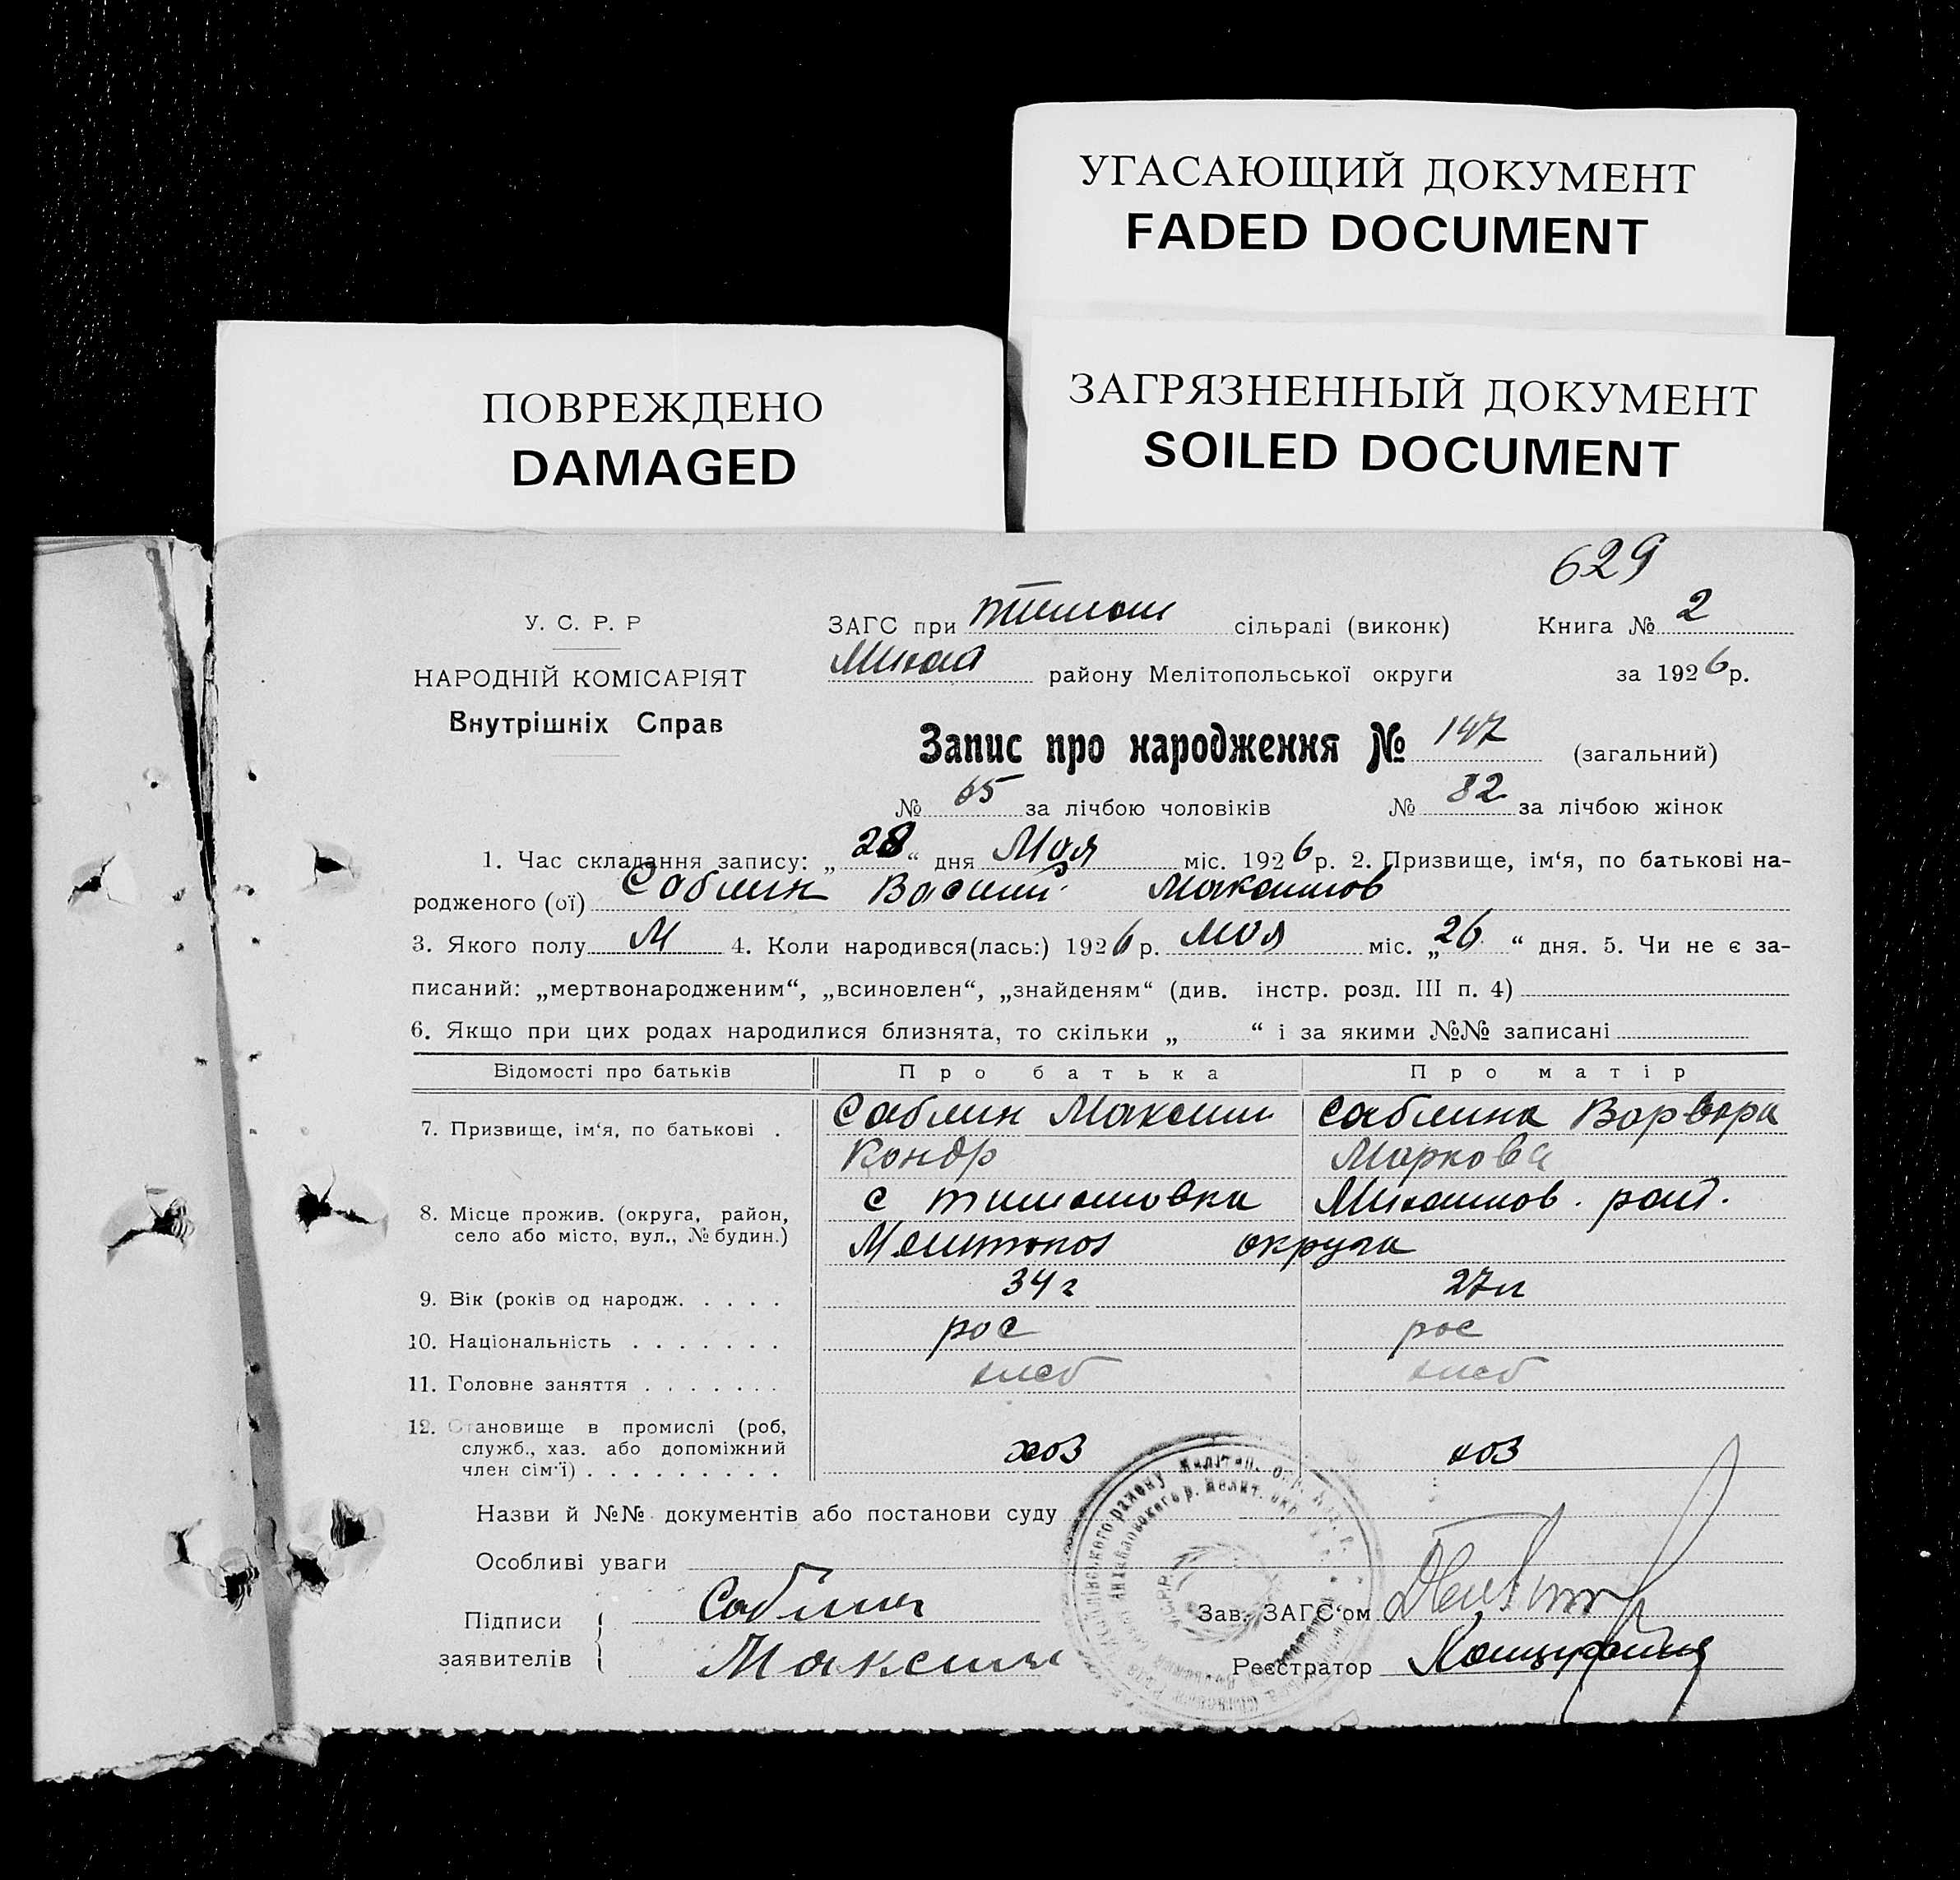 УГАСАЮЩИЙ ДОКУМЕНТ
FADED DOCUMENT
ПОВРЕЖДЕНО
DAMAGED
ЗАГРЯЗНЕННЫЙ ДОКУМЕНТ
SOILED DOCUMENT
629
У. С. Р. Р
НАРОДНІЙ КОМІСАРІЯТ
Внутрішніх Справ
ЗАГС при Тимош сільраді (виконк) Книга № 2
Михай району Мелітопольської округи за 1926 р.
Запис про народження № 147 (загальний)
№ 65 за лічбою чоловіків № 82 за лічбою жінок
1. Час складання запису: „28“ дня Мая міс. 1926 р. 2. Призвище, ім‘я, по батькові на-
родженого (ої) Саблин Василий Максимов
3. Якого полу М 4. Коли народився(лась:) 1926 р. мая міс. „26“ дня. 5. Чи не є за-
писаний: „мертвонародженим“, „всиновлен“, „знайденям“ (див. інстр. розд. III п. 4)
6. Якщо при цих родах народилися близнята, то скільки „ “ і за якими №№ записані
Відомості про батьків Про батька Про матір
7. Призвище, ім‘я, по батькові . Саблин Максим Саблина Варвара
Кондр Маркова
8. Місце прожив. (округа, район, село або місто, вул., № будин.) с тимошовка Михайлов. райд.
Мелитопол округа
9. Вік (років од народж. . . . . 34 г 27 л
10. Національність . . . . . . . рос рос
11. Головне заняття . . . . . . . хлеб хлеб
12. Становище в промислі (роб,
служб., хаз. або допоміжний
член сім‘ї) . . . . . . . . . хоз хоз
Назви й №№ документів або постанови суду
Особливі уваги
Підписи Саблин Зав. ЗАГС‘ом
заявителів Максим Реєстратор